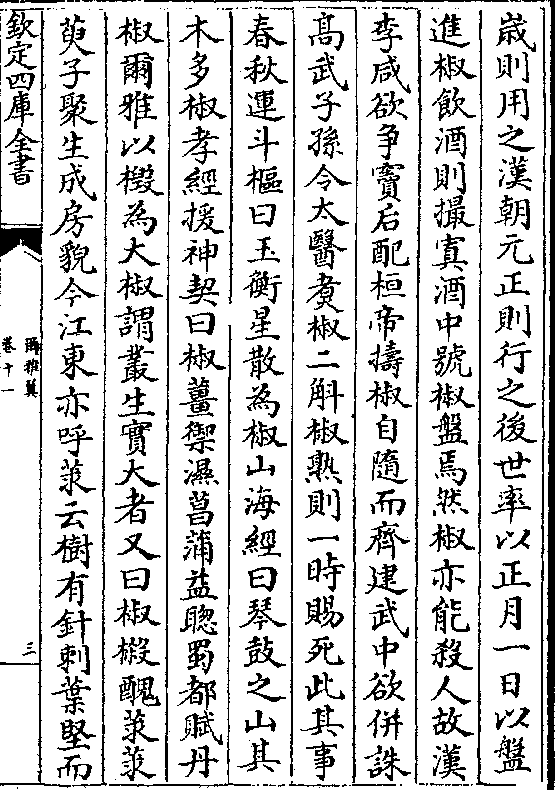 歳則用之漢朝元正則行之後世率以正月一日以盤
進椒飲酒則撮寘酒中號椒盤焉然椒亦能殺人故漢
李咸欲争竇后配桓帝擣椒自隨而齊建武中欲併誅
髙武子孫令太醫煑椒二斛椒熟則一時賜死此其事
春秋運斗樞曰玉衡星散為椒山海經曰琴鼓之山其
木多椒孝經援神契曰椒薑禦濕菖蒲益聰蜀都賦丹
椒爾雅以檓為大椒謂叢生實大者又曰椒樧醜莍莍
萸子聚生成房貌今江東亦呼莍云樹有針刺葉堅而
欽定四庫全書
爾雅翼
卷十一
三